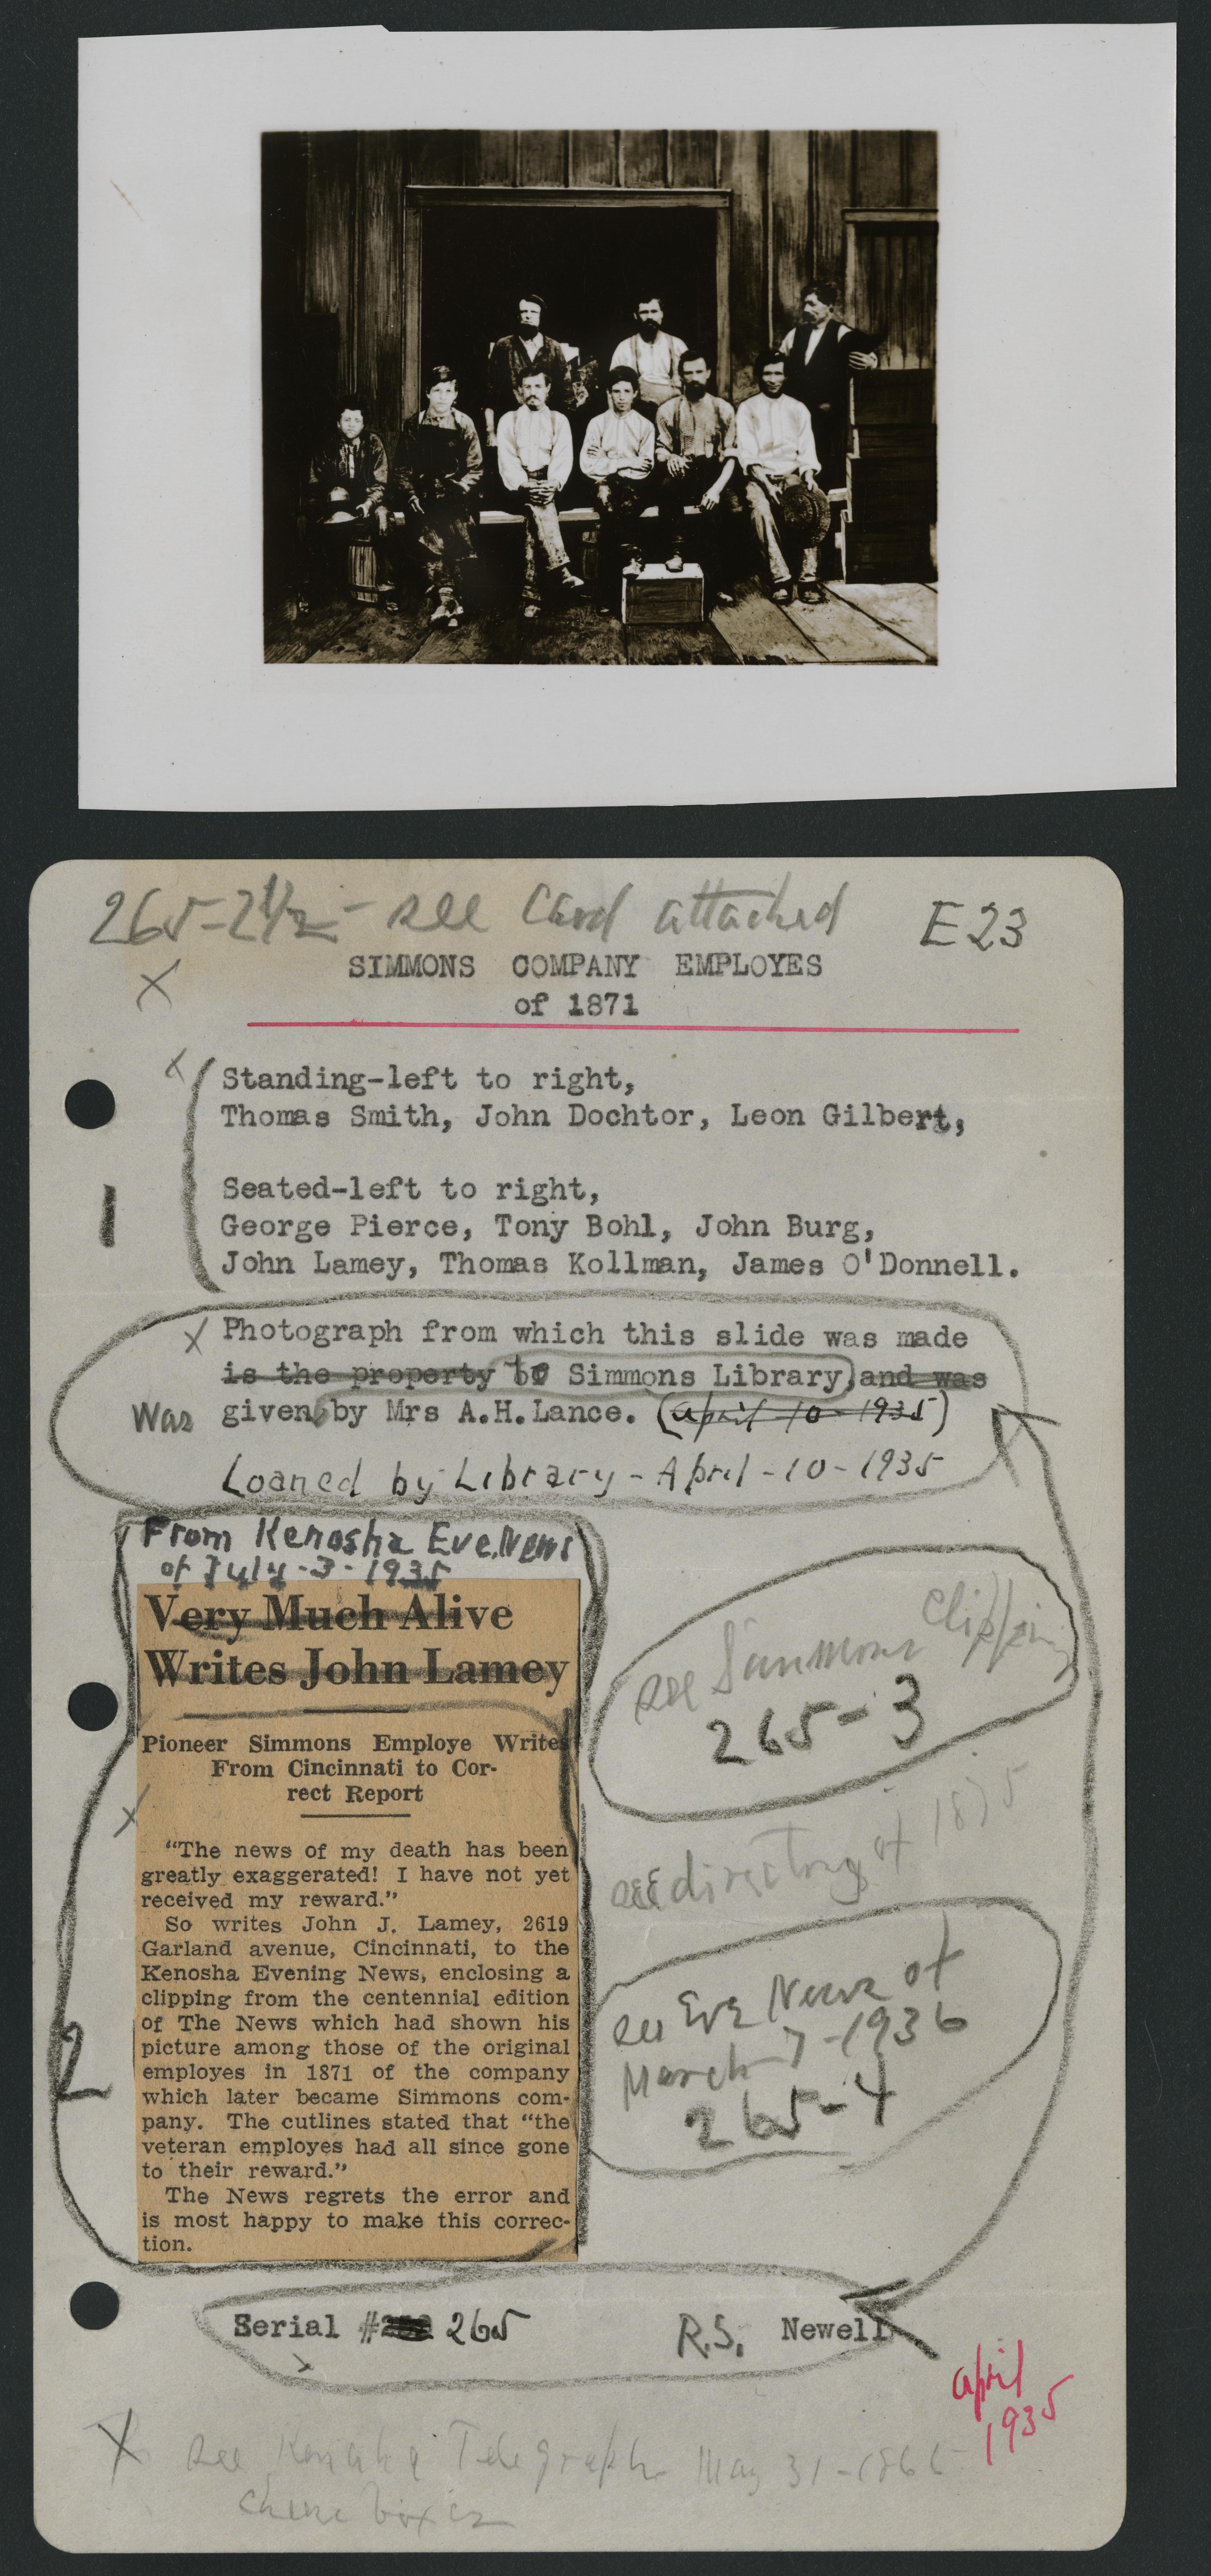 265-2½ - see Card attached E23
X
SIMMONS COMPANY EMPLOYES
of 1871
X
Standing-left to right,
Thomas Smith, John Dochtor, Leon Gilbert,
1
Seated-left to right,
George Pierce, Tony Bohl, John Burg,
John Lamey, Thomas Kollman, James O'Donnell.
X Photograph from which this slide was made
is the property to Simmons Library, and was
Was given by Mrs A.H.Lance. (April 10-1935)
Loaned by Library - April-10-1935
From Kenosha Eve.News
of July-3-1935
Very Much Alive
Writes John Lamey
Pioneer Simmons Employe Writes
From Cincinnati to Cor-
rect Report
X
"The news of my death has been
greatly exaggerated! I have not yet
received my reward."
So writes John J. Lamey, 2619
Garland avenue, Cincinnati, to the
Kenosha Evening News, enclosing a
clipping from the centennial edition
of The News which had shown his
picture among those of the original
employes in 1871 of the company
which later became Simmons com-
pany. The cutlines stated that "the
veteran employes had all since gone
to their reward."
The News regrets the error and
is most happy to make this correc-
tion.
2
see Simmons Clipping
265-3
see directory of 1875
see Eve News of
March 7-1936
265-4
Serial # 265 R.S. Newell
April
1935
X see Kenosha Telegraph May 31-1866